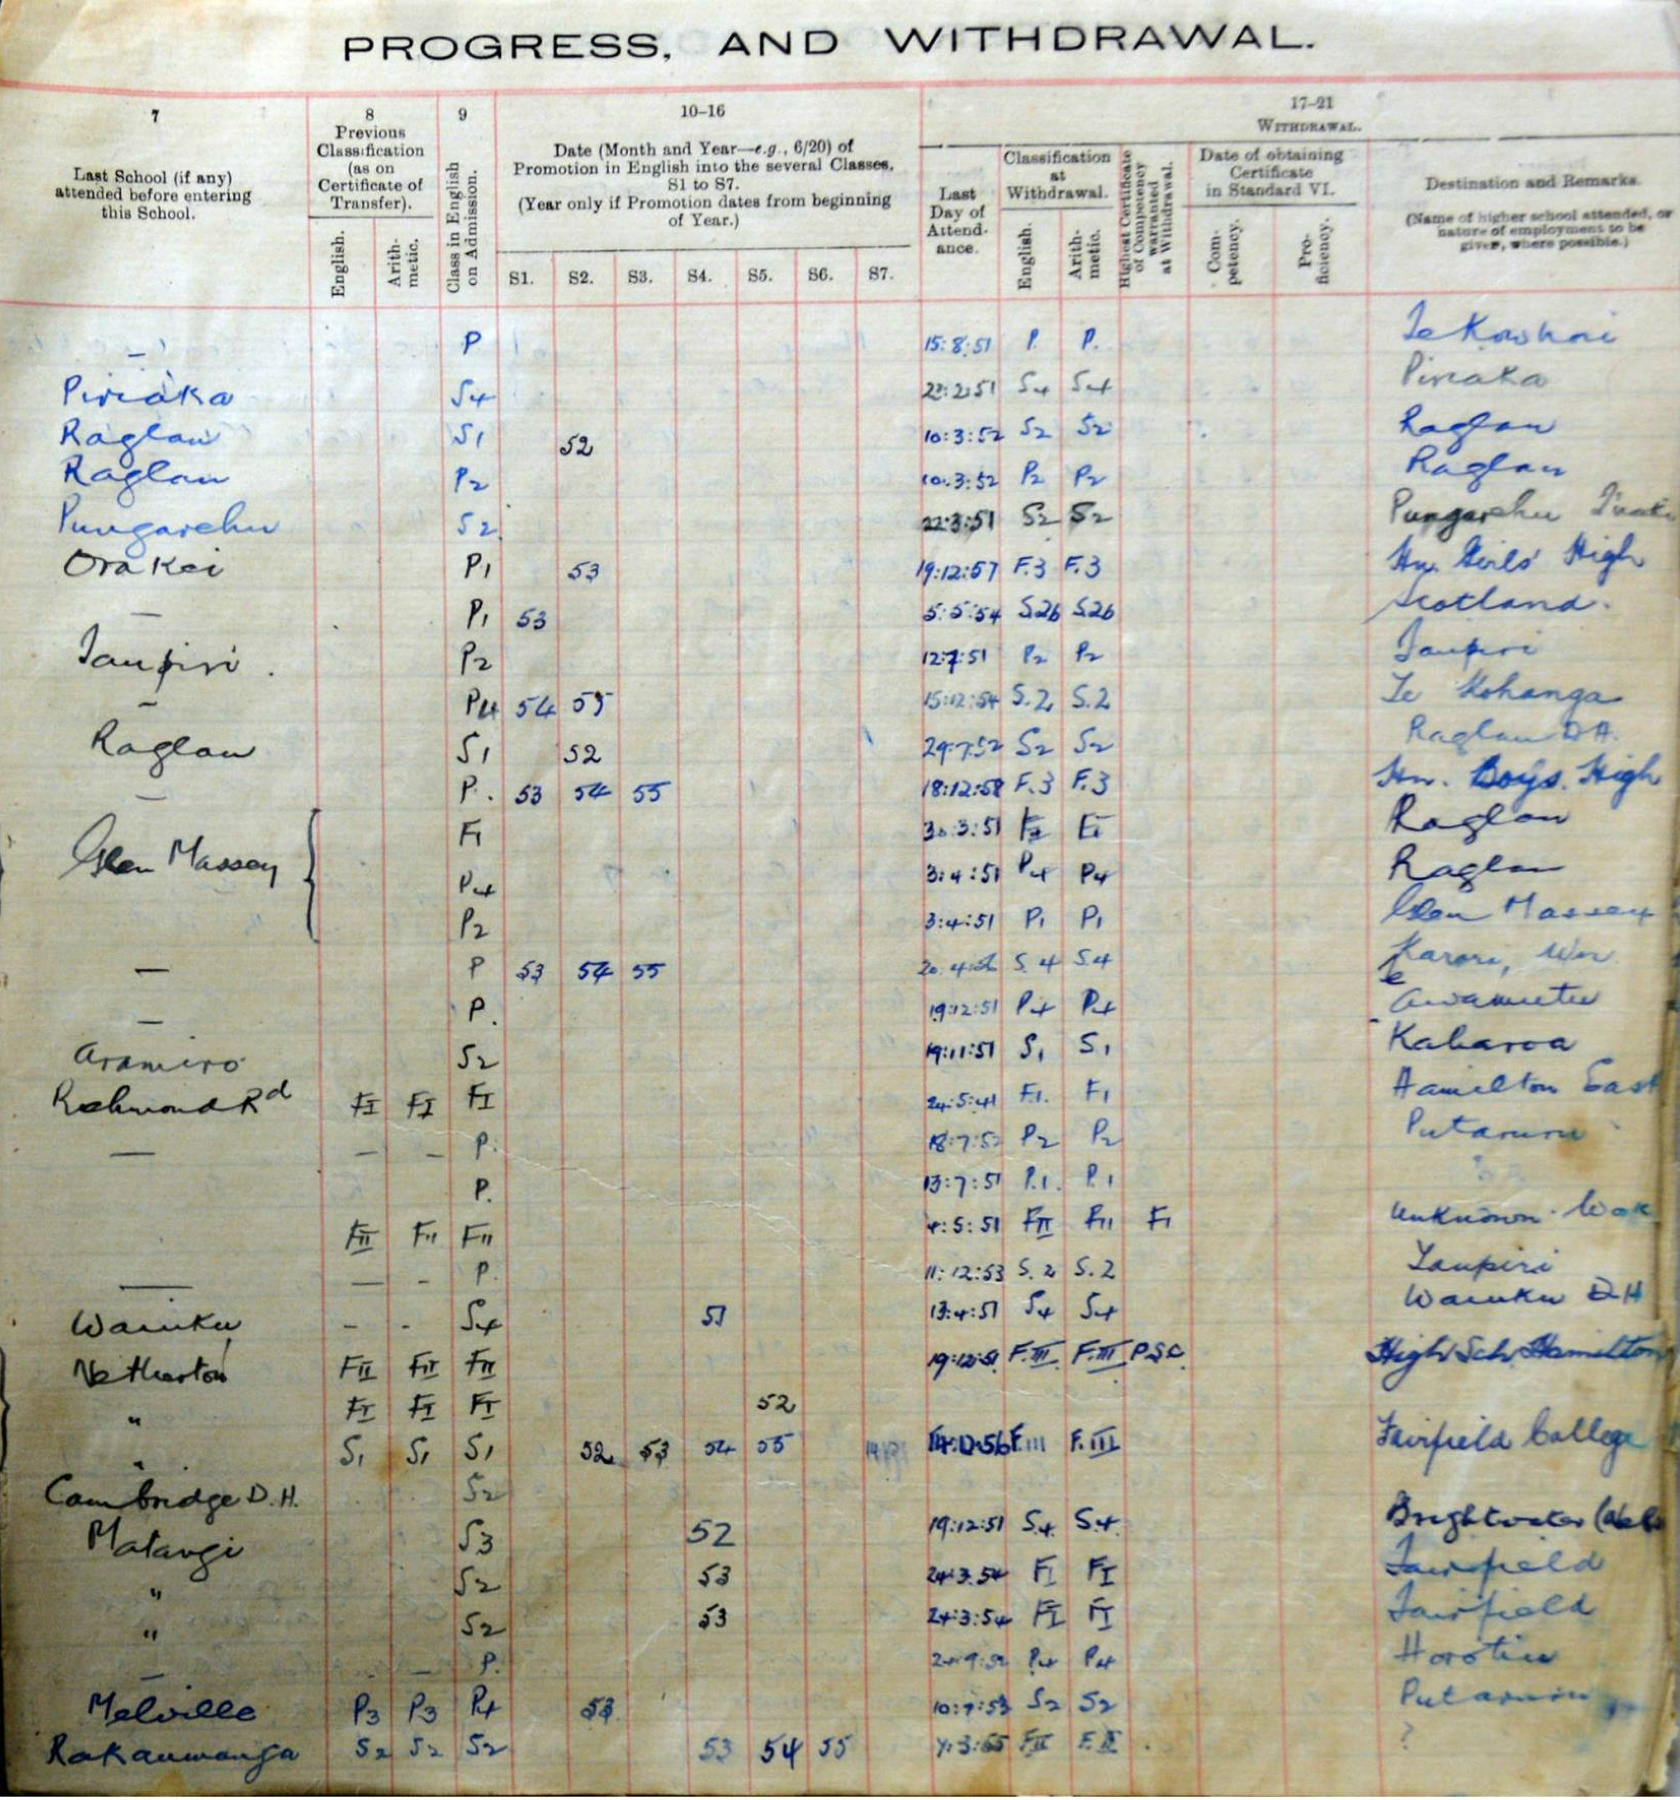 PROGRESS, AND WITHDRAWAL.
7 8 9 10-16 17-21
Last School (if any) attended before entering this School.
Previous Classification (as on Certificate of Transfer).
English. Arithmetic.
Class in English on Admission.
Date (Month and Year—e.g., 6/20) of Promotion in English into the several Classes, S1 to S7.
(Year only if Promotion dates from beginning of Year.)
S1. S2. S3. S4. S5. S6. S7.
WITHDRAWAL.
Last Day of Attendance.
Classification at Withdrawal.
English. Arithmetic.
Highest Certificate of Competency warranted at Withdrawal.
Date of obtaining Certificate in Standard VI.
Competency. Proficiency.
Destination and Remarks.
(Name of higher school attended, or nature of employment to be given, where possible.)
— P 15:8:51 P. P. Te Kowhai
Piriaka S4 22:2:51 S4 S4 Piriaka
Raglan S1 52 10:3:52 S2 S2 Raglan
Raglan P2 10:3:52 P2 P2 Raglan
Pungarehu S2 22:3:51 S2 S2 Pungarehu
Orakei P1 53 19:12:57 F.3 F.3 Hn. Girls' High
— P1 53 5:5:54 S2b S2b Scotland.
Taupiri. P2 12:7:51 P2 P2 Taupiri
— P4 54 55 15:12:54 S.2 S.2 Te Kohanga
Raglan S1 52 29:7:52 S2 S2 Raglan D.H.
— P. 53 54 55 18:12:58 F.3 F.3 Hn. Boys. High
F1 30:3:51 Raglan
Glen Massey P4 3:4:51 P4 P4 Raglan
P2 3:4:51 P1 P1 Glen Massey
— P 53 54 55 S.4 S.4 Karori, Wn
— P. 19:12:51 P4 P4 Awamutu
Aramiro S2 19:11:51 S1 S1 Kaharoa
Richmond Rd FI FI FI F1. F1 Hamilton East
— — — P. 18:7:52 P2 P2 Putaruru
P. 13:7:51 P.1. P.1
FII FII FII 4:5:51 FII FII F1 Unknown.
— — - P. 11:12:53 S.2 S.2 Taupiri
Waiuku - - S4 51 13:4:51 S4 S4 Waiuku D.H
Netherton FII FII FII 19:12:51 F.III F.III P.S.C. High Sch Hamilton
" FI FI FI 52
" S1 S1 S1 52 53 54 55 F.III F.III Fairfield College
Cambridge D.H. S2
Matangi S3 52 19:12:51 S4. S4. Brightwater
" S2 53 24:3:54 FI FI Fairfield
" S2 53 24:3:54 FI FI Fairfield
— — P. P4 P4 Horotiu
Melville P3 P3 P4 53 10:7:53 S2 S2 Putaruru
Rakaumanga S2 S2 S2 53 54 55 FII F.II ?